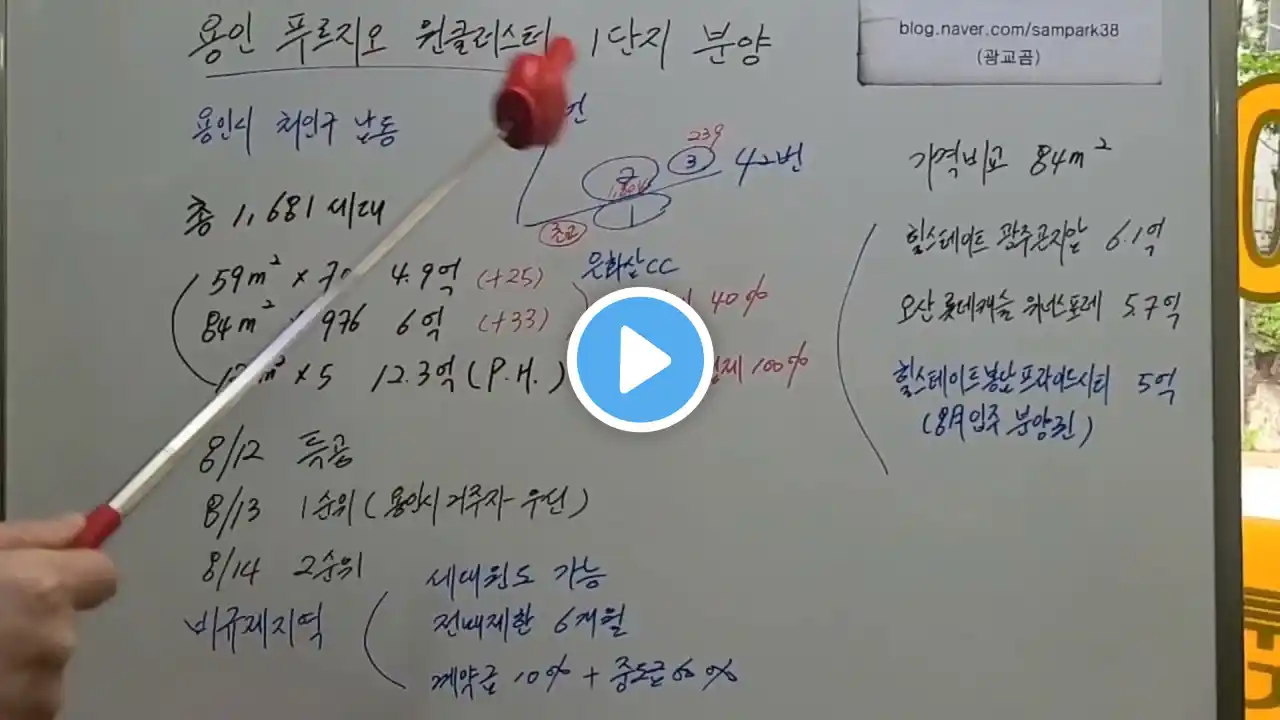 용인 푸르지오 원클러스터 1단지 분양
blog.naver.com/sampark38
(광교곰)
용인시 처인구 남동
번
239
3
42번
2
1
초교
문화산CC
총 1,681세대
59m² × 4.9억 (+25)
40%
84m² × 976 6억 (+33)
m² × 5 12.3억 (P.H.)
100%
8/12 특공
8/13 1순위 (용인시 거주자 우선)
8/14 2순위
비규제지역
세대원도 가능
전매제한 6개월
계약금 10% + 중도금 60%
가격비교 84m²
힐스테이트 광주곤지암 6.1억
오산 롯데캐슬 위너스포레 5.7억
힐스테이트봉남프라이드시티 5억
(8月입주 분양권)